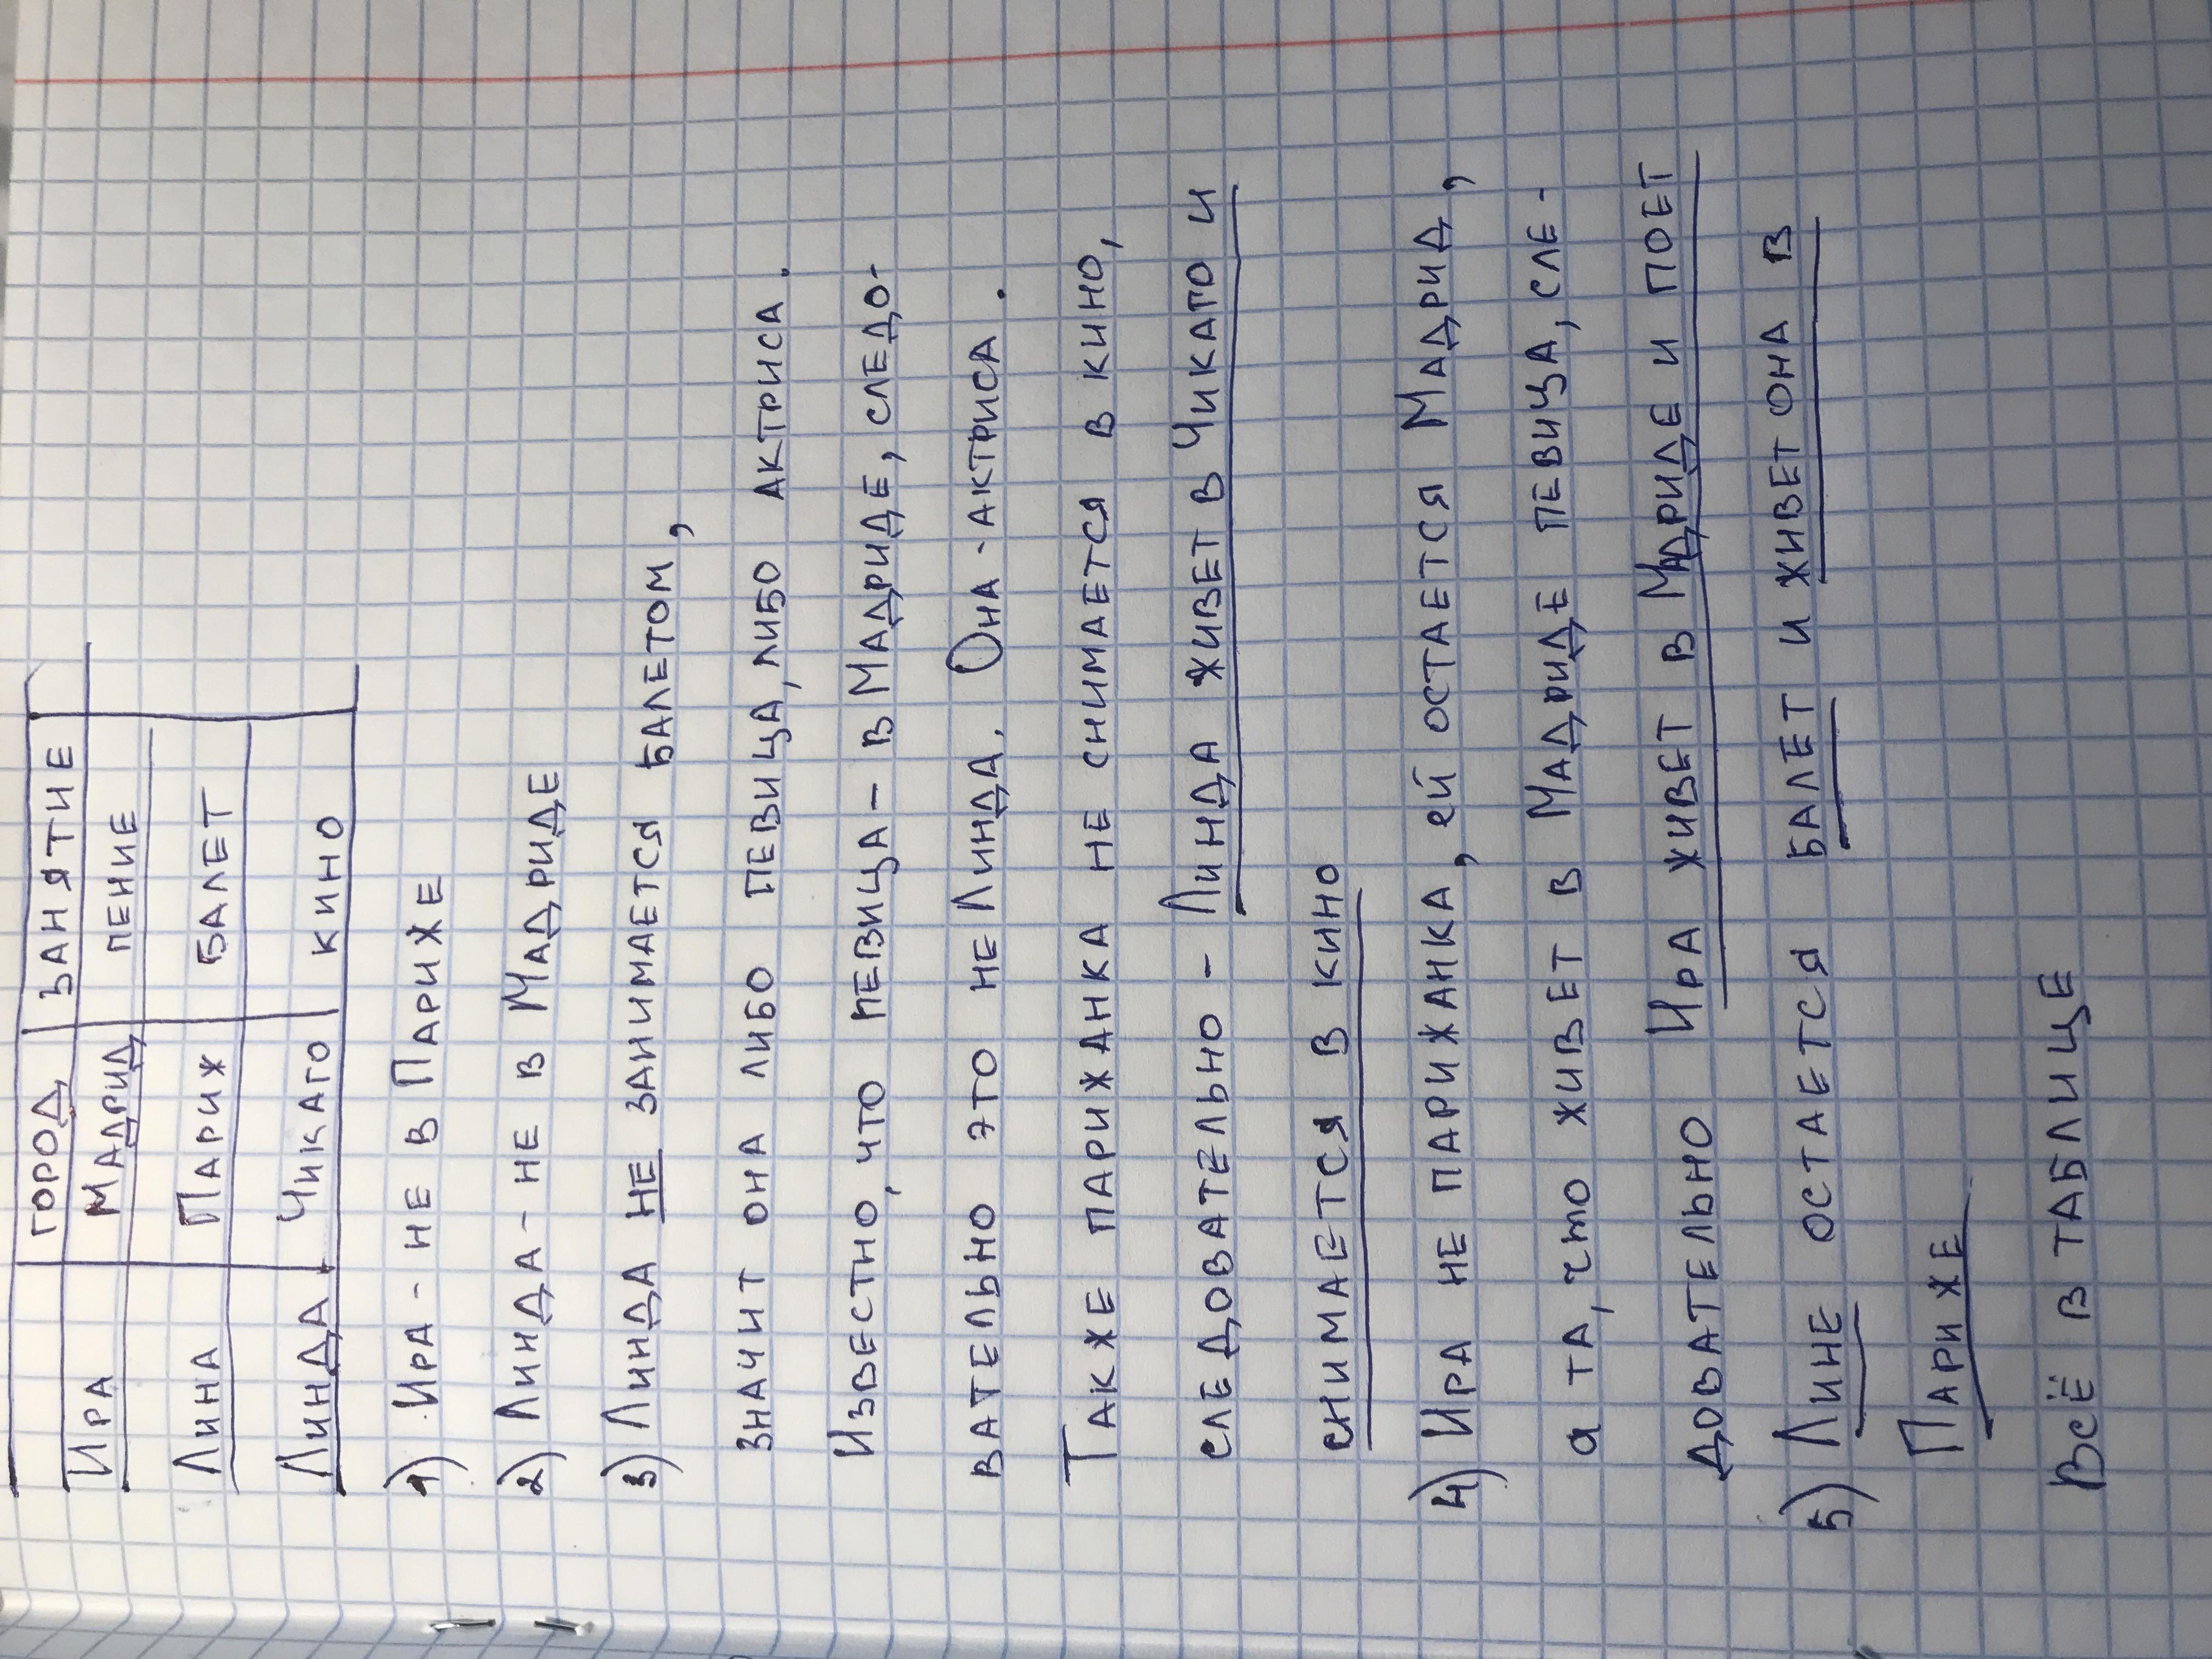 ГОРОД ЗАНЯТИЕ
ИРА МАДРИД ПЕНИЕ
ЛИНА ПАРИЖ БАЛЕТ
ЛИНДА ЧИКАГО КИНО
1) ИРА - НЕ В ПАРИЖЕ
2) ЛИНДА - НЕ В МАДРИДЕ
3) ЛИНДА НЕ ЗАНИМАЕТСЯ БАЛЕТОМ,
ЗНАЧИТ ОНА ЛИБО ПЕВИЦА, ЛИБО АКТРИСА.
ИЗВЕСТНО, ЧТО ПЕВИЦА - В МАДРИДЕ, СЛЕДО-
ВАТЕЛЬНО ЭТО НЕ ЛИНДА. ОНА - АКТРИСА.
ТАКЖЕ ПАРИЖАНКА НЕ СНИМАЕТСЯ В КИНО,
СЛЕДОВАТЕЛЬНО - ЛИНДА ЖИВЕТ В ЧИКАГО И
СНИМАЕТСЯ В КИНО
4) ИРА НЕ ПАРИЖАНКА, ЕЙ ОСТАЕТСЯ МАДРИД,
а ТА, что ЖИВЕТ В МАДРИДЕ ПЕВИЦА, СЛЕ-
ДОВАТЕЛЬНО ИРА ЖИВЕТ В МАДРИДЕ И ПОЕТ
5) ЛИНЕ ОСТАЕТСЯ БАЛЕТ И ЖИВЕТ ОНА В
ПАРИЖЕ
ВСЁ В ТАБЛИЦЕ